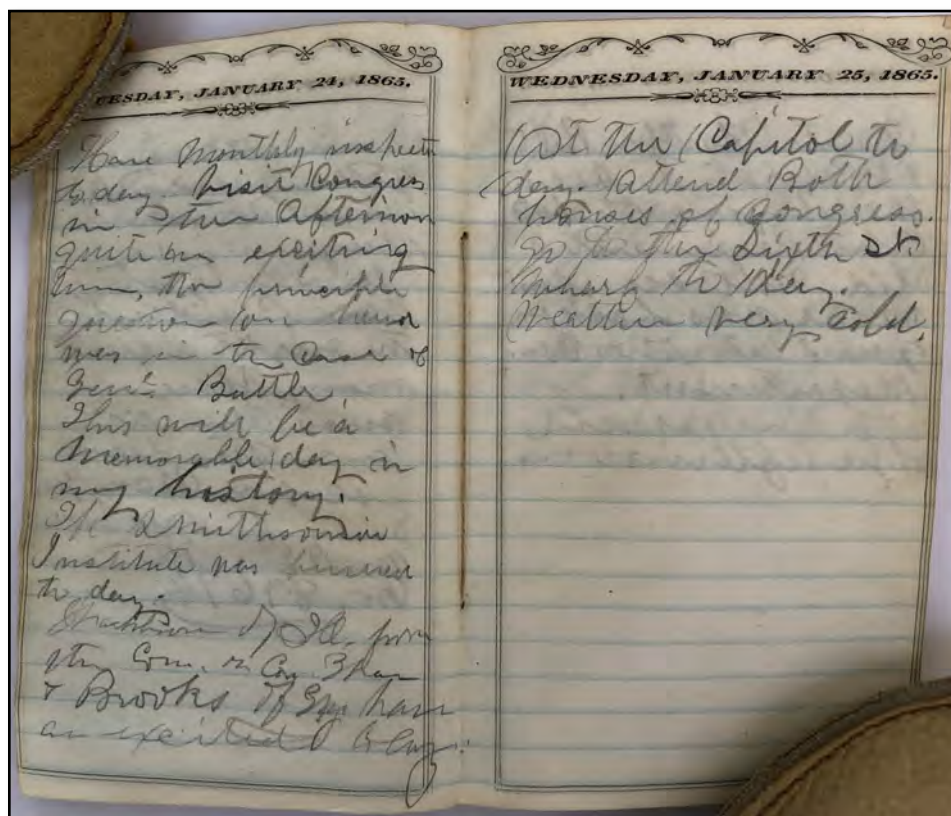 TUESDAY, JANUARY 24, 1865.
Have Monthly inspect
to day. Visit Congress
in the Afternoon
quite an exciting
time, the principle
question on hand
was in the Case of
Gen'l Buttler,
This will be a
Memorable day in
my history.
The Smithsonian
Institute was burned
to day.
of Ill. from
Com. on
& Brooks of have
an excited
WEDNESDAY, JANUARY 25, 1865.
At the Capitol to
day. Attend Both
houses of Congress.
go to the Sixth St
Wharf to day.
Weather very Cold.